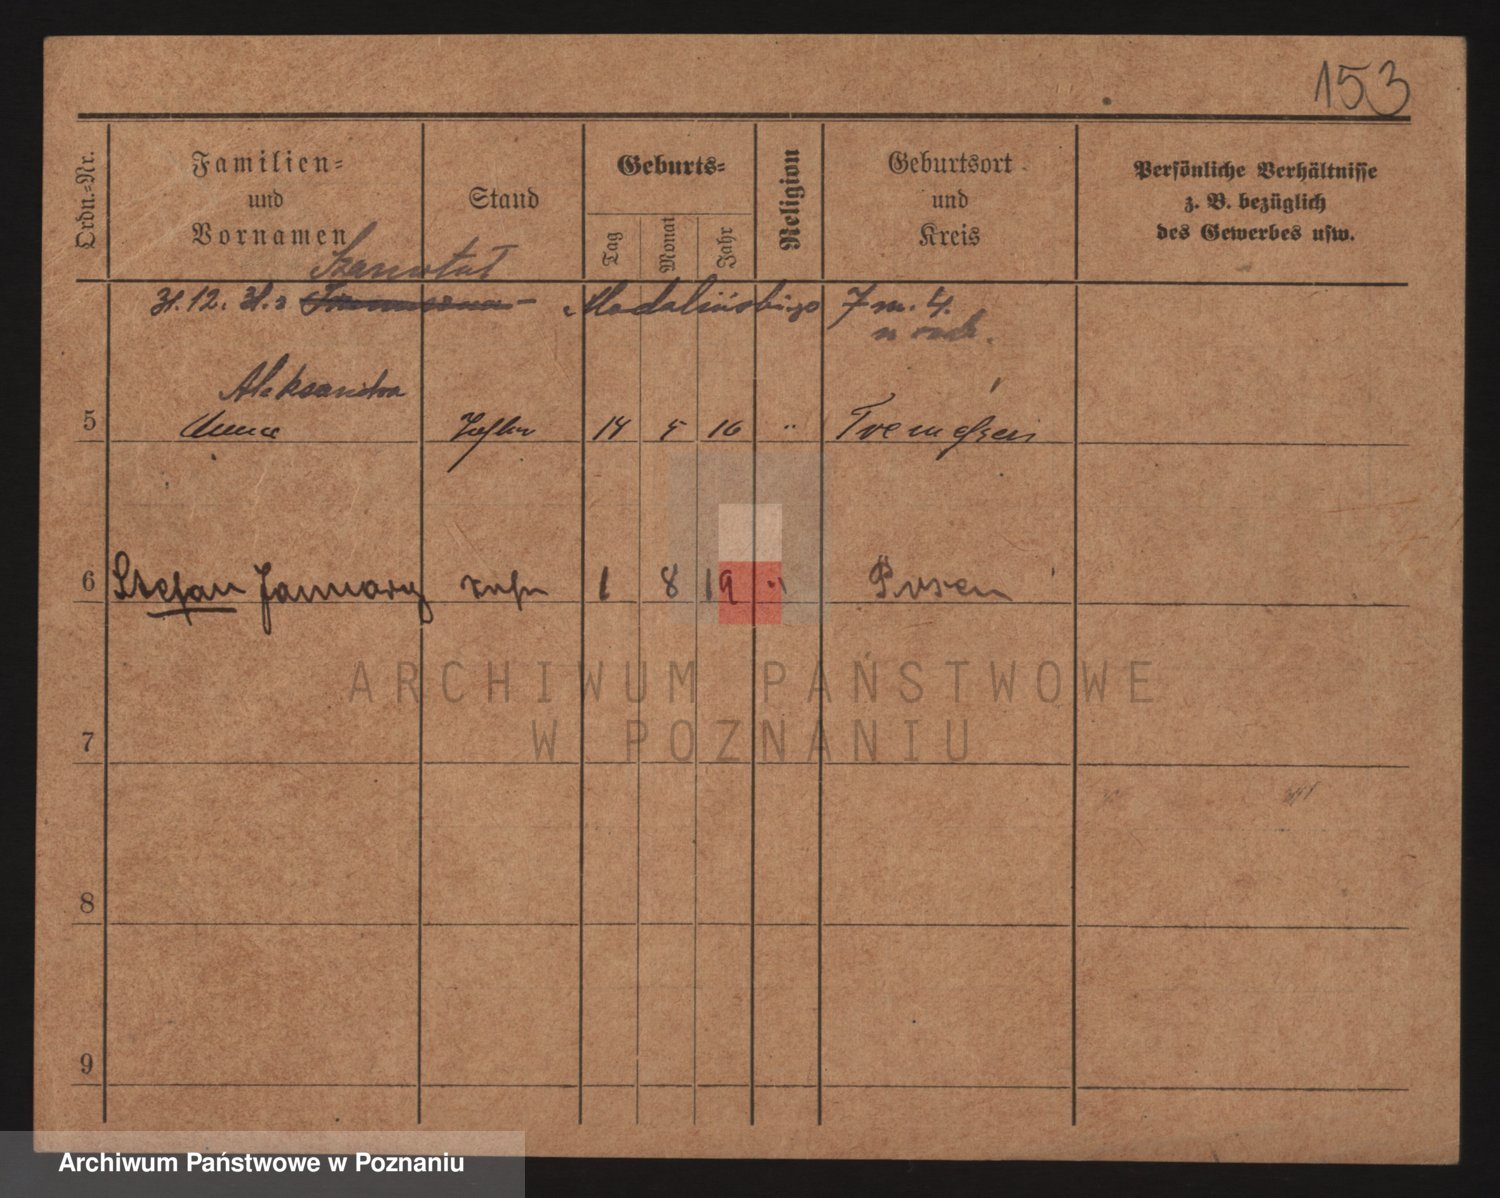 153
Ordn.=Nr.
Familien=
und
Vornamen
Stand
Geburts=
Tag
Monat
Jahr
Religion
Geburtsort
und
Kreis
Persönliche Verhältnisse
z. B. bezüglich
des Gewerbes usw.
Szamotuł
31.12. 31. z Madalińskiego 7 m. 4.
Aleksandra
5 Anna Tochter 14 5 16 " Tremessen
6 Stefan January Sohn 1 8 19 " Posen
ARCHIWUM PAŃSTWOWE
W POZNANIU
7
8
9
Archiwum Państwowe w Poznaniu